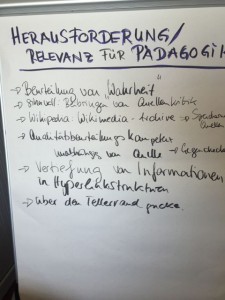 HERAUSFORDERUNG/
RELEVANZ FÜR PÄDAGOGIK
→ Beurteilung von "Wahrheit"
→ sinnvoll: Beibringen von Quellenkritik
→ Wikipedia: Wikimedia-Archive →
Quellen
→ Qualitätsbeurteilungskompetenz
unabhängig von Quelle →
→ Vertiefung von Informationen
in Hyperlinkstrukturen
→ über den Tellerrand gucken